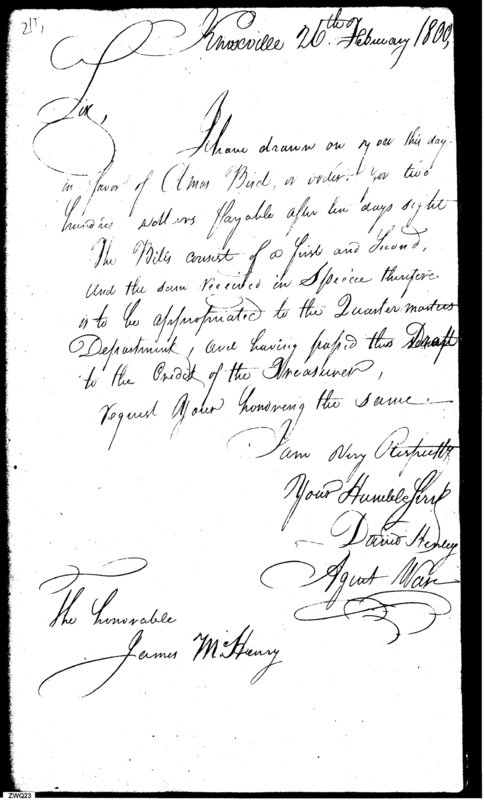 217,
Knoxville 26th February 1800,
Sir,
I have drawn on you this day
in favor of Amos Bird, or order, for two
hundred dollars payable after ten days sight
The Bills consist of a first and Second,
and the sum received in Specie therefore
is to be appropriated to the Quarter masters
Department, and having passed this Draft
to the Credit of the Treasurer,
request Your honoring the same.
I am very Respectfly
Your Humble Servt
David Henley
Agent War
The honorable
James McHenry
ZWQ23